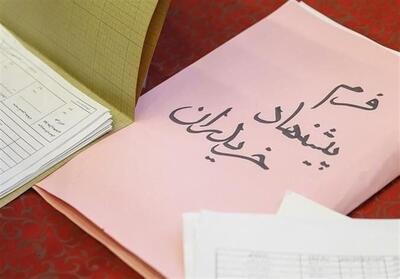 فرم
پیشنهاد
خریداران